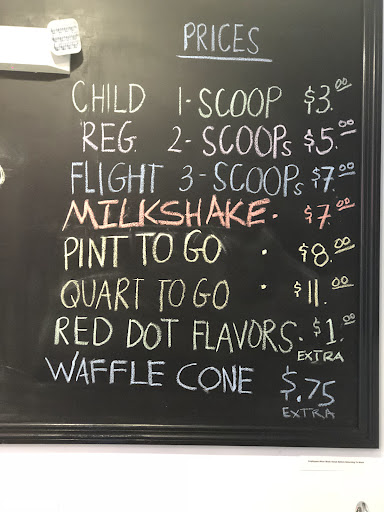 PRICES
CHILD 1-SCOOP $3.00
REG. 2-SCOOPs $5.00
FLIGHT 3-SCOOPs $7.00
MILKSHAKE. $7.00
PINT TO GO . $8.00
QUART TO GO . $11.00
RED DOT FLAVORS. $1.00
EXTRA
WAFFLE CONE $.75
EXTRA